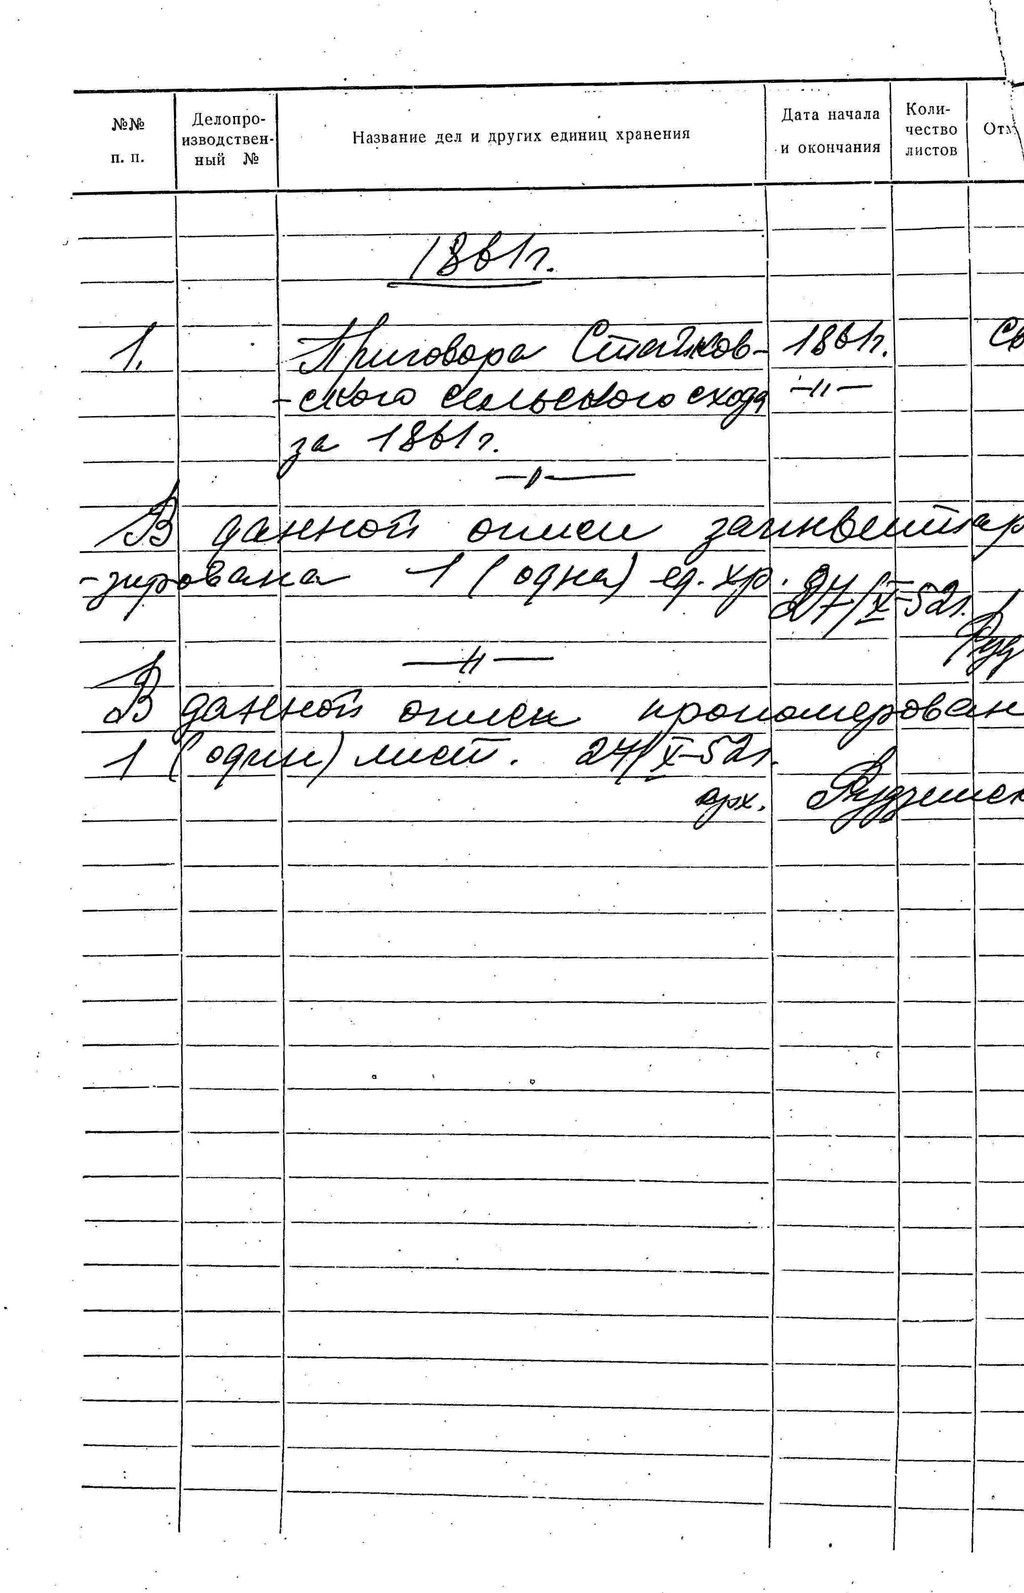 №№ п. п.
Делопро-
изводствен-
ный №
Название дел и других единиц хранения
Дата начала
и окончания
Коли-
чество
листов
1861г.
1. Приговора Стайков- 1861г. Св
-ского сельского схода —"—
за 1861г.
В данной описи заинвентар
-зирована 1 (одна) ед. хр. 27/X-52г.
Руд
В данной описи прономерован
1 (один) лист. 27/X-52г.
арх.